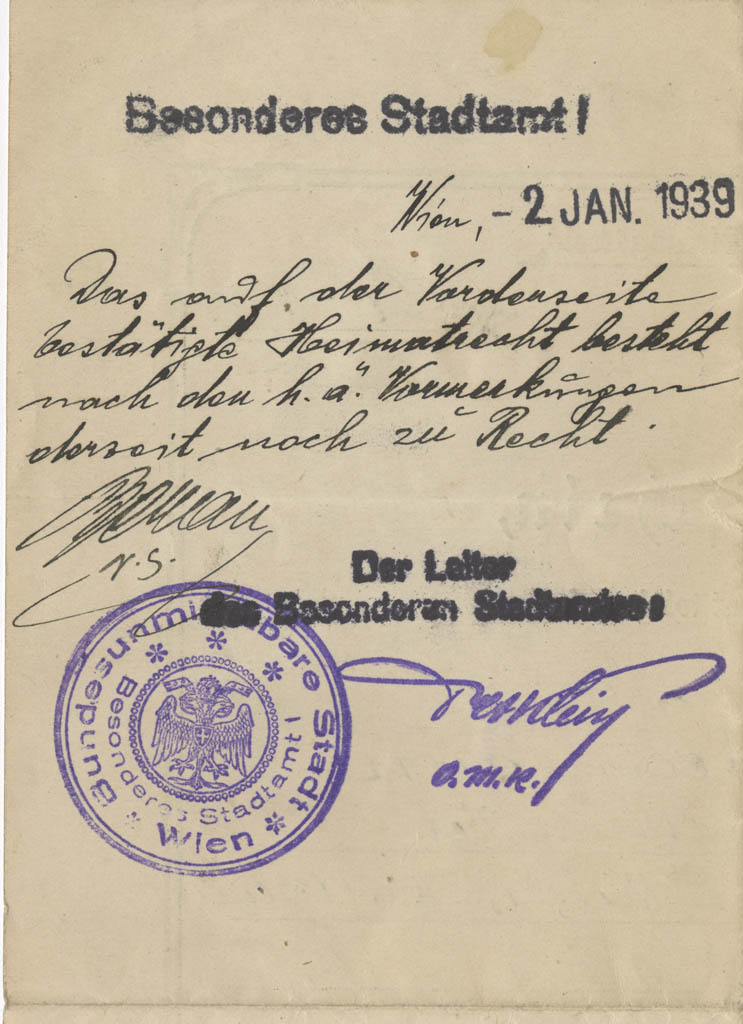 Besonderes Stadtamt I
Wien, - 2 JAN. 1939
Das auf der Vorderseite
bestätigte Heimatrecht besteht
nach den h. ä. Vormerkungen
derzeit noch zu Recht.
V.S.
Der Leiter
des Besonderen Stadtamtes I
Bundesunmittelbare Stadt
* Wien *
Besonderes Stadtamt I
o.m.k.